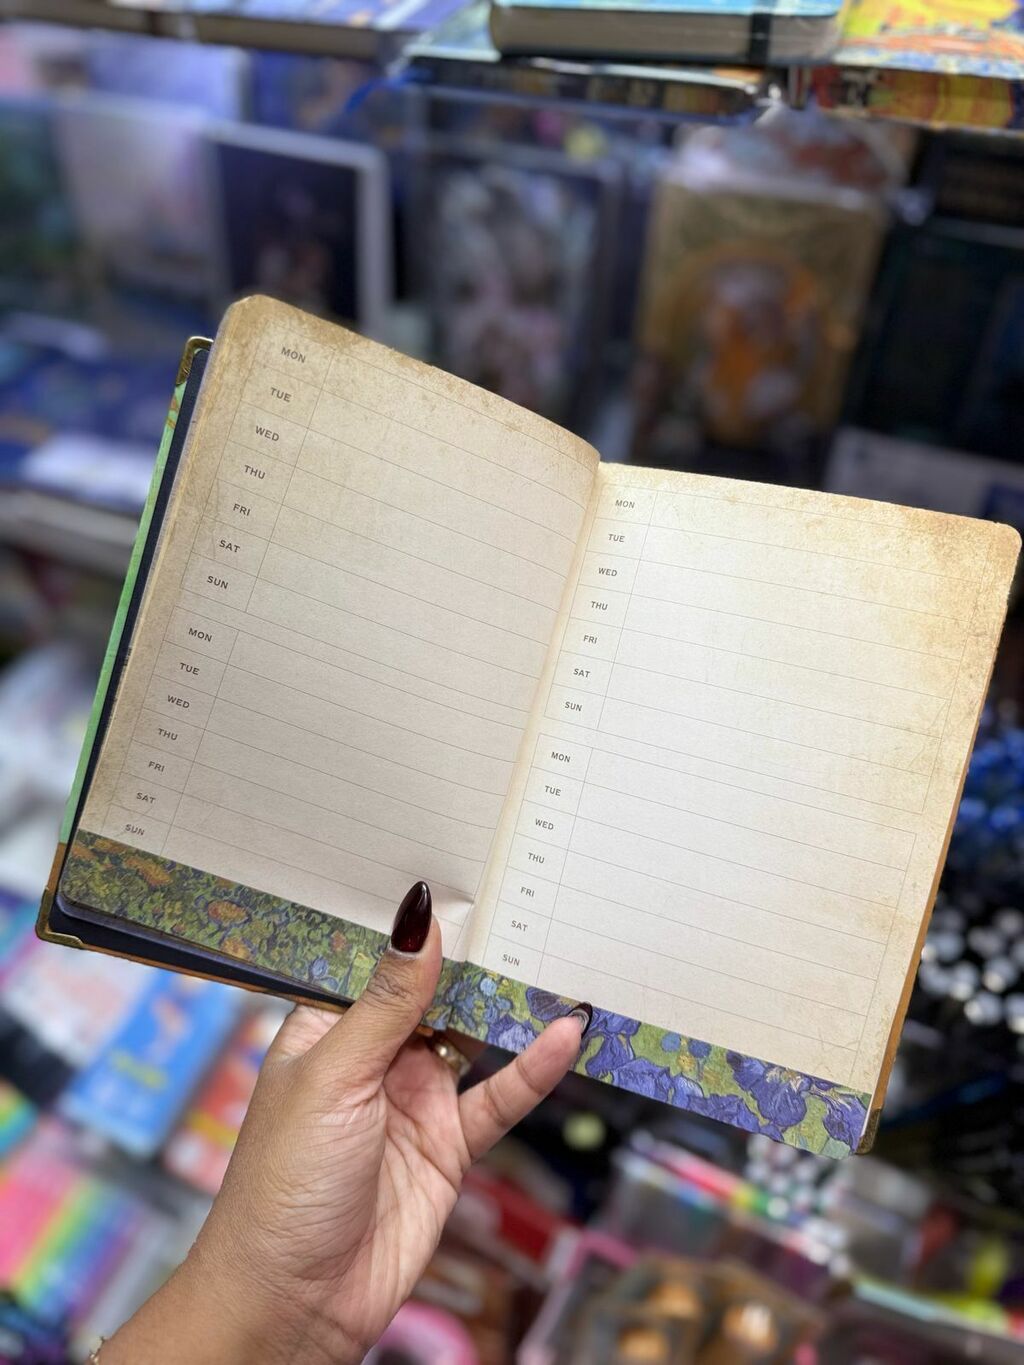 MON
TUE
WED
THU
FRI
SAT
SUN
MON
TUE
WED
THU
FRI
SAT
SUN
MON
TUE
WED
THU
FRI
SAT
SUN
MON
TUE
WED
THU
FRI
SAT
SUN